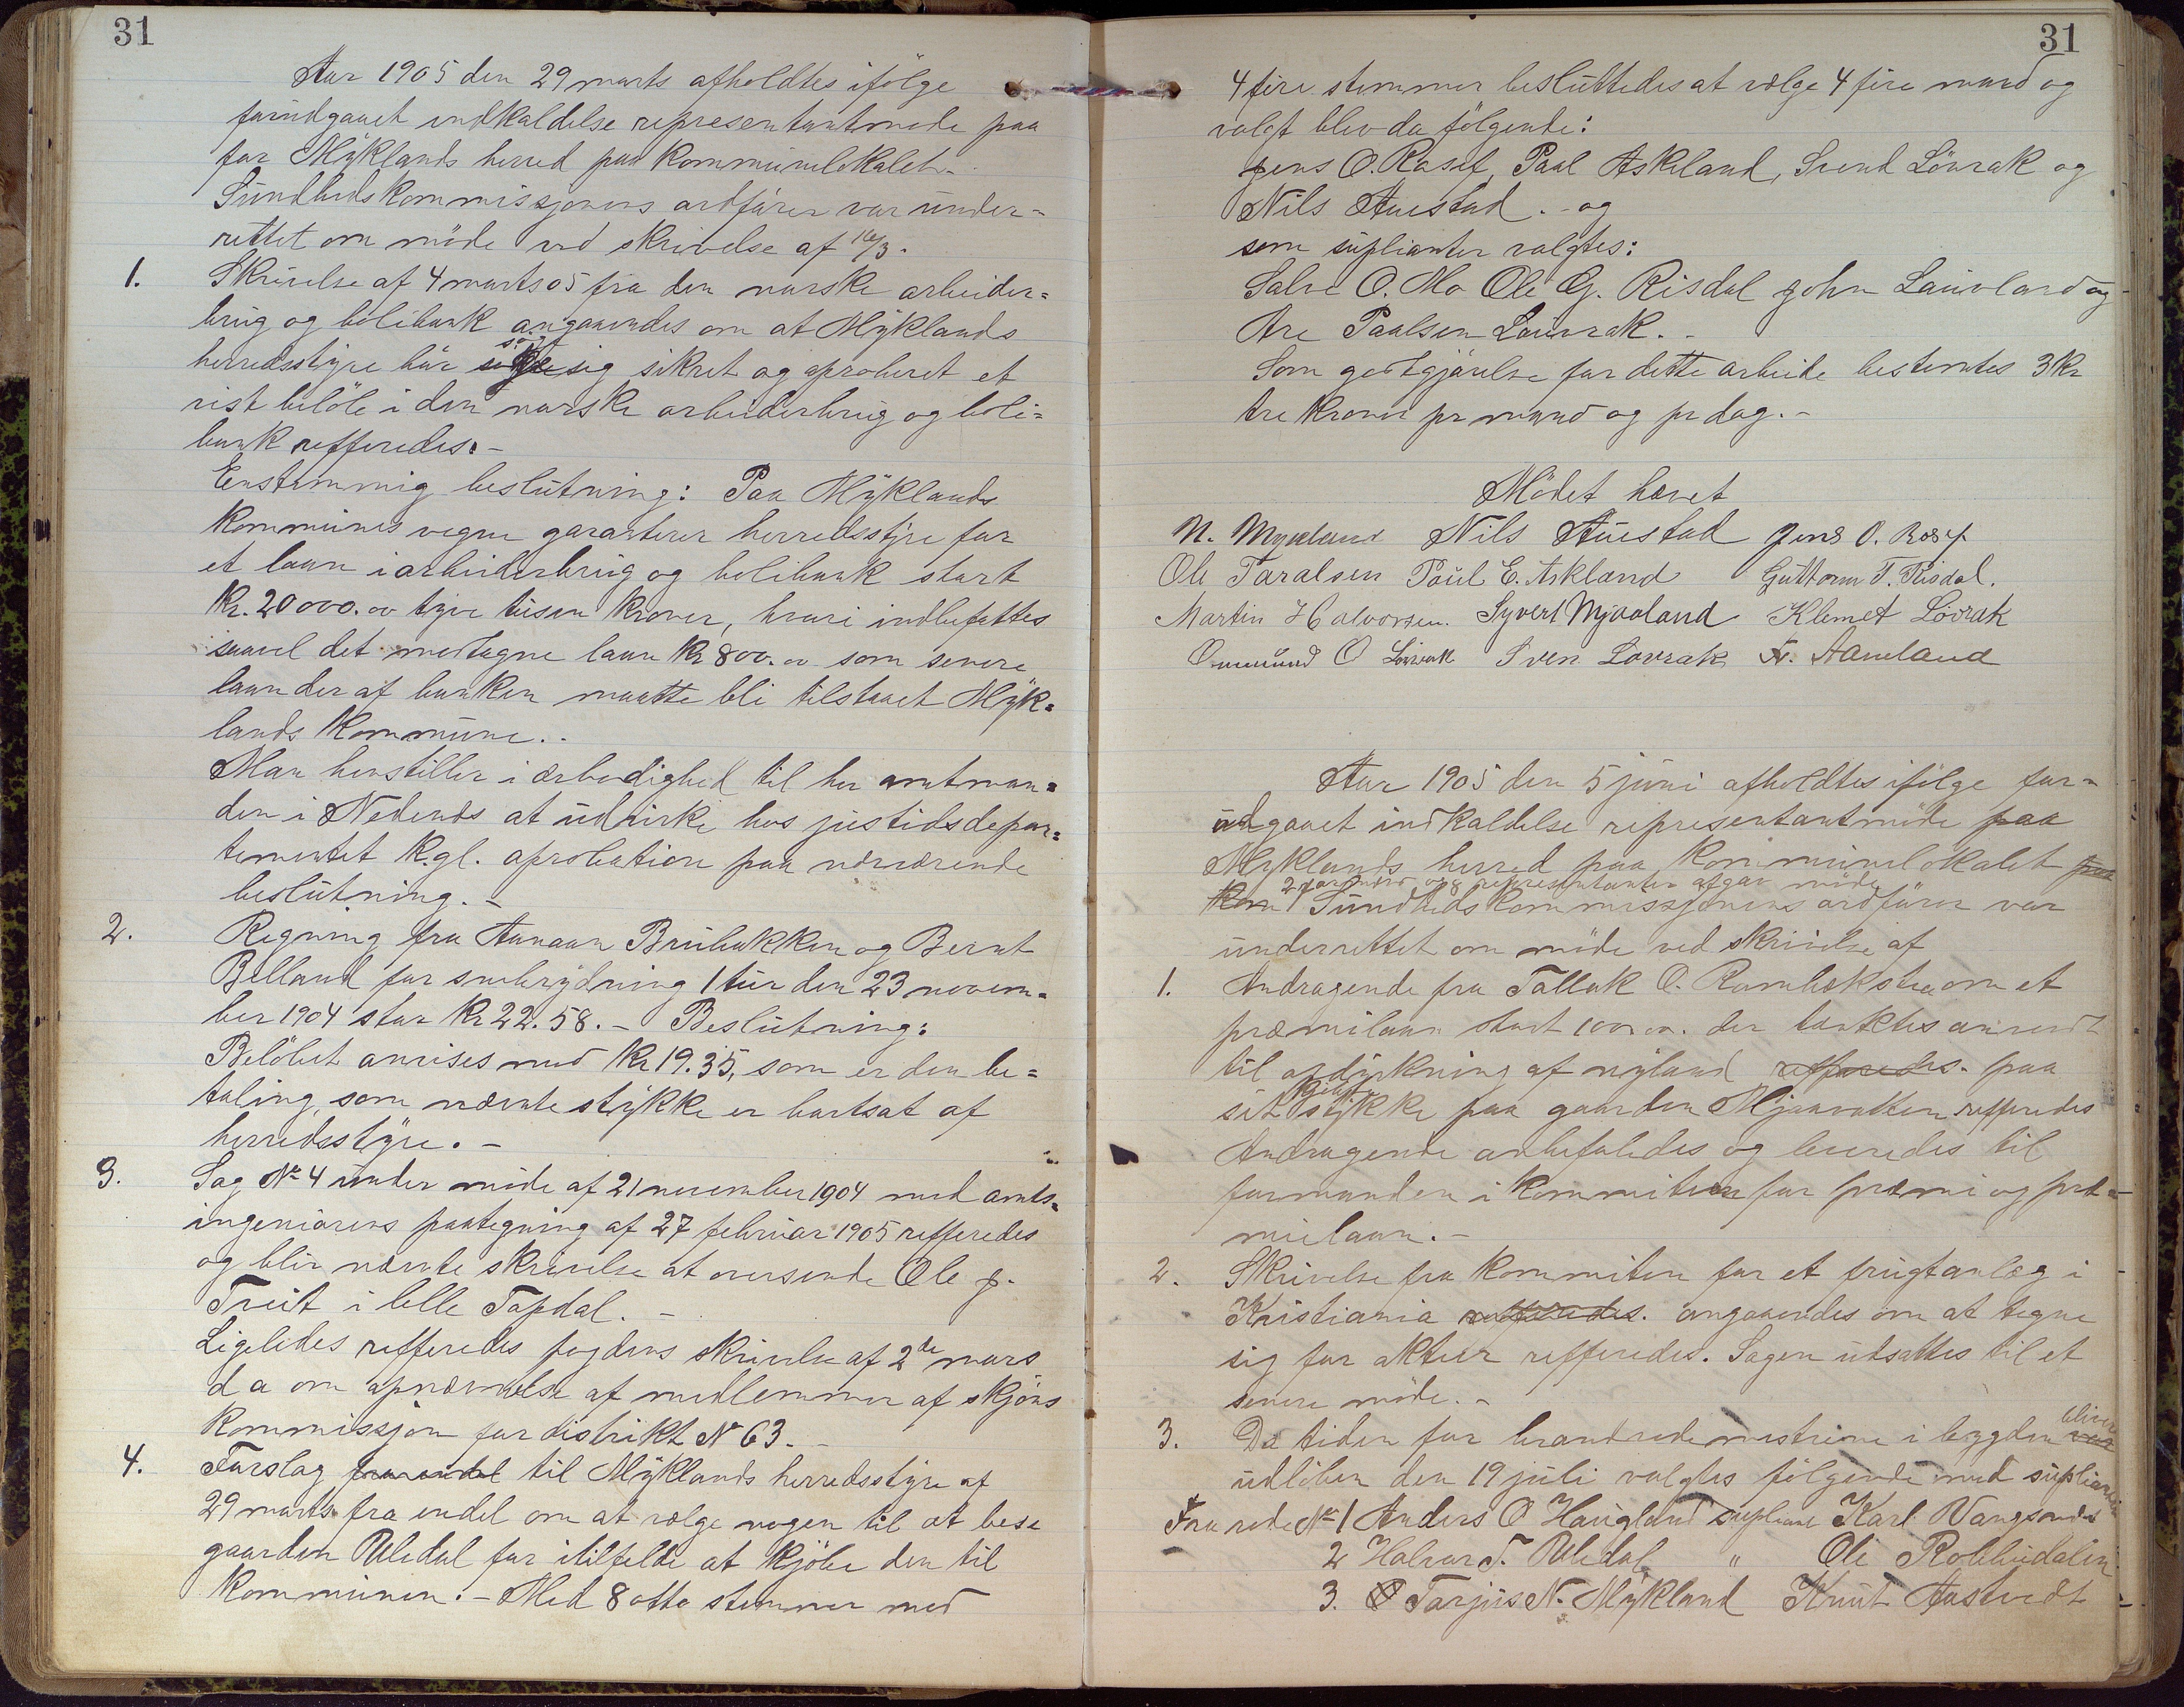 31
Aar 1905 den 29 marts afholdtes ifölge
forudgaaet indkaldelse representantmøde paa
for Mÿklands herred paa kommunelokalet.-
Sundhedskommissjonens ordförer var under=
rettet om möde ved skrivelse af 16/3.
1. Skrivelse af 4 marts 05 fra den norske arbeider=
brug og bolibank angaaendes om at Mÿklands
herredsstyre bör sig sikret og aproberet et
vist belöb i den norske arbeiderbrug og boli=
bank refferedes.-
Enstemmig beslutning: Paa Mÿklands
kommunes vegne garanterer herredsstyre for
et laan i arbeiderbrug og bolibank stort
Kr. 20000.00 tyve tusen kroner, hvori indbefattes
saavel det modtagne laan Kr 800.00 som senere
laan der af banken maatte bli tilstaaet Mÿk=
lands kommune..
Man henstiller i ærbødighed til her amtman=
den i Nedenes at udvirke hos justidsdepar=
tementet kgl. aprobation paa nærværende
beslutning.-
2. Regning fra Aanaan Brubakken og Bernt
Belland for snebrydning 1 tur den 23 novem=
ber 1904 stor Kr 22.58.- Beslutning:
Belöbet anvises med Kr 19.35, som er den be=
taling, som nævnte stykke er bortsat af
herredsstyre.-
3. Sag No 4 under møde af 21 november 1904 med amts=
ingeniørens paategning af 27 februar 1905 refferedes
og blir nævnte skrivelse at oversende Ole J.
Treit i lille Topdal.-
Ligeledes refferedes fogdens skrivelse af 2de mars
d a om opnævnelse af medlemmer af skjöns
kommissjon for distrikt No 63.-
4. Forslag fra endel til Mÿklands herredsstyre af
29 marts fra endel om at vælge nogen til at bese
gaarden Uledal for itilfelde at kjöbe den til
kommunen.- Med 8 otte stemmer mod
31
4 fire stemmer besluttedes at vælge 4 fire mand og
valgt blev da fölgende:
Jens O. Rosef, Paal Askeland, Svend Lövrak og
Nils Auestad.- og
som suplianter valgtes:
Salve O. Mo Ole G. Risdal John Lauvland og
Are Paalsen Lauvrak.-
Som godtgjörelse for dette arbeide bestemtes 3 Kr
tre kroner pr mand og pr dag.-
Mödet hævet
N. Mykland Nils Auestad Jens O. Rosef
Ole Taralsen Poul E. Askland Guttorm T. Risdal.
Martin Halvorsen. Syvert Mjaaland Klemet Lövrak
Ommund O Lövrak Sven Lovrak Fr. Aamland
Aar 1905 den 5 juni afholdtes ifölge for=
udgaaet indkaldelse representantmöde paa
Myklands herred paa kommunelokalet paa
2 og 8 representanter afgav möde
kom Sundhedskommissjonens ordförer var
underrettet om möde ved skrivelse af
1. Andragende fra Tallak O. Rambækstea om et
præmilaan stort 100.00. der tænktes anvendt
til opdyrkning af nyland refferedes. paa
sit stykke paa gaarden Mjaavatten refferedes
Andragende anbefaledes og leveredes til
formanden i kommiteen for præmi og præ=
mielaan.-
2. Skrivelse fra kommiteen for et frugtanlæg i
Kristiania refferedes. angaaendes om at tegne
sig for aktier refferedes. Sagen udsattes til et
senere möde.-
3. Da tiden for brandrodemestrene i bygden var
bliver
udlöben den 19 juli valgtes fölgende med suplianter
Fra rode No 1 Anders O Haugland supliant Karl Vangsnes
2 Halvor T. Uledal " Ole Robbudalen
3. Tarjus N. Mÿkland Knut Aastvedt